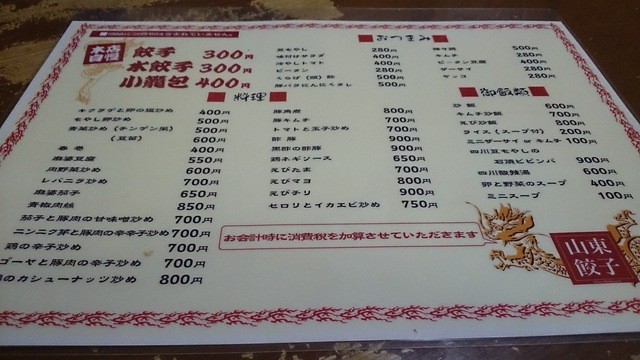 本店自慢
餃子 300円
水餃子 300円
小籠包 400円
おつまみ
豆もやし 280円
味付けザラダ 400円
冷やしトマト 400円
ピーマン 280円
くらげ(頭)酢 500円
豚バラにんにくタレ 500円
棒々鶏 500円
キムチ 280円
ピータン豆腐 400円
ザーサイ 280円
ヤッコ 280円
料理
キクラゲと卵の塩炒め 400円
もやし卵炒め 500円
青菜炒め(チンゲン菜) 500円
(豆苗) 600円
春巻 400円
麻婆豆腐 550円
肉野菜炒め 600円
レバニラ炒め 700円
麻婆茄子 650円
青椒肉絲 850円
茄子と豚肉の甘味噌炒め 700円
ニンニク芽と豚肉の辛辛子炒め 700円
鶏の辛子炒め 700円
ゴーヤと豚肉の辛子炒め 700円
のカシューナッツ炒め 800円
豚角煮 800円
豚キムチ 700円
トマトと玉子炒め 700円
酢豚 700円
黒酢の酢豚 900円
鶏ネギソース 650円
えびたま 700円
えびマヨ 800円
えびチリ 900円
セロリとイカエビ炒め 750円
御飯類
炒飯 600円
キムチ炒飯 700円
えび炒飯 800円
ライス(スープ付) 200円
ミニザーサイ or キムチ 100円
四川豆もやしの
石頂ビビンバ 900円
四川酸辣湯 600円
卵と野菜のスープ 400円
ミニスープ 100円
お会計時に消費税を加算させていただきます
山東
餃子